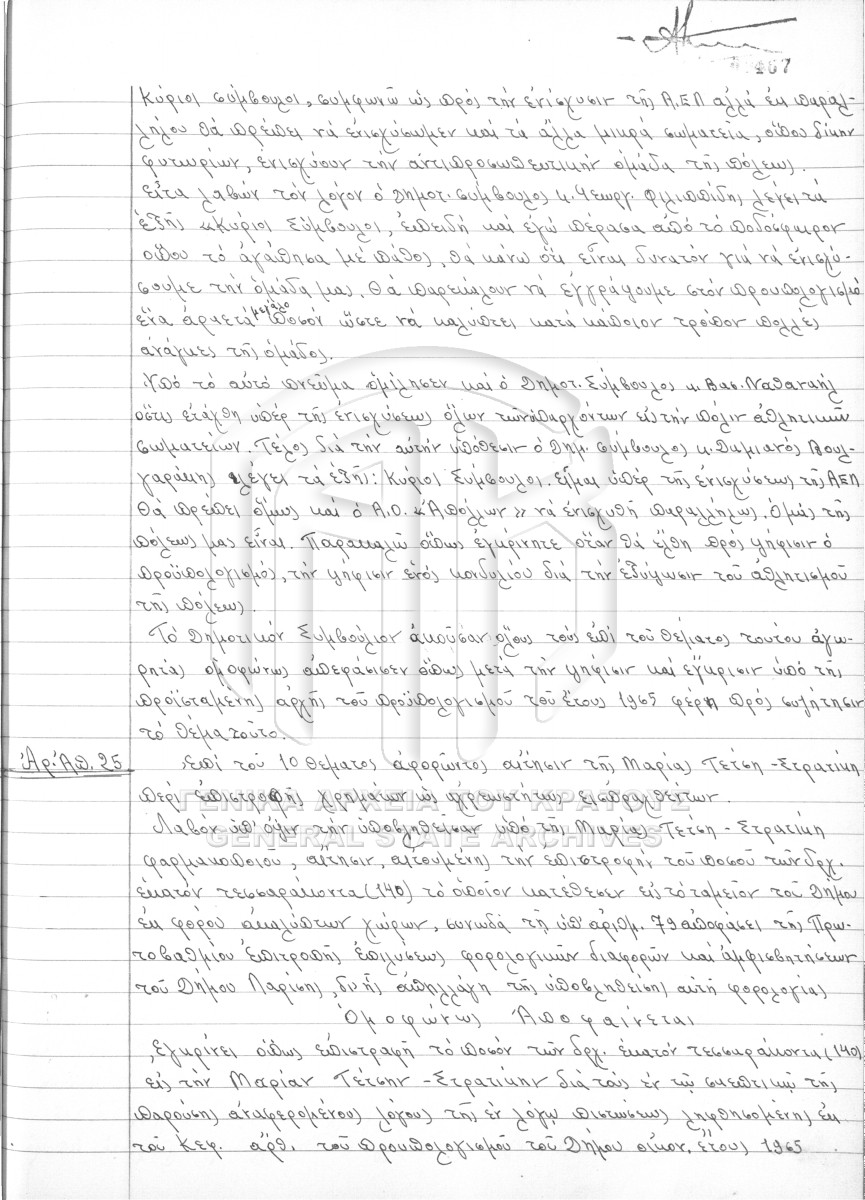 467
Κύριοι σύμβουλοι, συμφωνῶ ὡς πρός τήν ἐνίσχυσιν τῆς Α.Ε.Λ ἀλλά ἐκ παραλ-
λήλου θά πρέπει νά ἐνισχύσωμεν καί τά ἄλλα μικρά σωματεῖα, ὅπου δίκην
φυτωρίων, ἐνισχύουν τήν ἀντιπροσωπευτικήν ὁμάδα τῆς πόλεως.
Εἶτα λαβών τόν λόγον ὁ Δημοτ. σύμβουλος κ. Γεωργ. Φιλιππίδης λέγει τά
ἑξῆς «Κύριοι Σύμβουλοι, ἐπειδή καί ἐγώ πέρασα ἀπό τό ποδόσφαιρον
ὅπου τό ἀγάπησα μέ πάθος, θά κάνω ὅτι εἶναι δυνατόν γιά νά ἐνισχύ-
σουμε τήν ὁμάδα μας. Θά παρεκάλουν νά ἐγγράψουμε στόν προυπολογισμό
ἕνα ἀρκετά μεγάλο ποσόν ὥστε νά καλύπτει κατά κάποιον τρόπον πολλές
ἀνάγκες τῆς ὁμάδος.
Ὑπό τό αὐτό πνεῦμα ὁμίλησεν καί ὁ Δημοτ. Σύμβουλος κ. Βασ. Ναθαναήλ
ὅστις ἐτάχθη ὑπέρ τῆς ἐνισχύσεως ὅλων τῶν ὑπαρχόντων εἰς τήν πόλιν ἀθλητικῶν
σωματείων. Τέλος διά τήν αὐτήν ὑπόθεσιν ὁ Δημ. σύμβουλος κ. Δαμιανός Βουλ-
γαράκης λέγει τά ἑξῆς: Κύριοι Σύμβουλοι. Εἶμαι ὑπέρ τῆς ἐνισχύσεως τῆς ΑΕΛ
Θά πρέπει ὅμως καί ὁ Α.Ο. «Ἀπόλλων» νά ἐνισχυθῆ παραλλήλως. Ὁμάς τῆς
πόλεως μας εἶναι. Παρακαλῶ ὅπως ἐγκρίνητε ὅταν θά ἔλθη πρός ψήφισιν ὁ
προϋπολογισμός, τήν ψήφισιν ἑνός κονδυλίου διά τήν ἐξύψωσιν τοῦ ἀθλητισμοῦ
τῆς πόλεως.
Τό Δημοτικόν Συμβούλιον ἀκοῦσαν ὅλους τούς ἐπί τοῦ θέματος τούτου ἀγω-
ρητάς ὁμοφώνως ἀπεφάσισεν ὅπως μετά τήν ψήφισιν καί ἔγκρισιν ὑπό τῆς
προϊσταμένης ἀρχῆς τοῦ προϋπολογισμοῦ τοῦ ἔτους 1965 φέρη πρός συζήτησιν
τό θέμα τοῦτο.
Ἀρ. Ἀπ. 25
Ἐπί τοῦ 10 θέματος ἀφορῶντος αἴτησιν τῆς Μαρίας Τέτση - Στρατίκη
περί ἐπιστροφῆς χρημάτων ὡς ἀχρεωστήτως εἰσπραχθέντων.
ΓΕΝΙΚΑ ΑΡΧΕΙΑ ΤΟΥ ΚΡΑΤΟΥΣ
GENERAL STATE ARCHIVES
Λαβόν ὑπ' ὄψιν τήν ὑποβληθεῖσαν ὑπό τῆς Μαρίας Τέτση - Στρατίκη
φαρμακοποιοῦ, αἴτησιν, αἰτουμένης τήν ἐπιστροφήν τοῦ ποσοῦ τῶν δρχ.
ἑκατόν τεσσαράκοντα (140) τό ὁποῖον κατέθεσεν εἰς τό ταμεῖον τοῦ Δήμου
ἐκ φόρου ἀκαλύπτων χώρων, συνωδά τῆ ὑπ' ἀριθμ. 79 ἀποφάσει τῆς Πρω-
τοβαθμίου Ἐπιτροπῆς ἐπιλύσεως φορολογικῶν διαφορῶν καί ἀμφισβητήσεων
τοῦ Δήμου Λαρίσης, δι' ἧς ἀπηλλάγη τῆς ὑποβληθείσης αὐτῆ φορολογίας
Ὁμοφώνως Ἀποφαίνεται
Ἐγκρίνει ὅπως ἐπιστραφῆ τό ποσόν τῶν δρχ. ἑκατόν τεσσαράκοντα (140)
εἰς τήν Μαρίαν Τέτσην - Στρατίκην διά τούς ἐν τῷ σκεπτικῷ τῆς
παρούσης ἀναφερομένους λόγους τῆς ἐν λόγῳ πιστώσεως ληφθησομένης ἐκ
τοῦ Κεφ. ἀρθ. τοῦ προυπολογισμοῦ τοῦ Δήμου οἰκον. ἔτους 1965